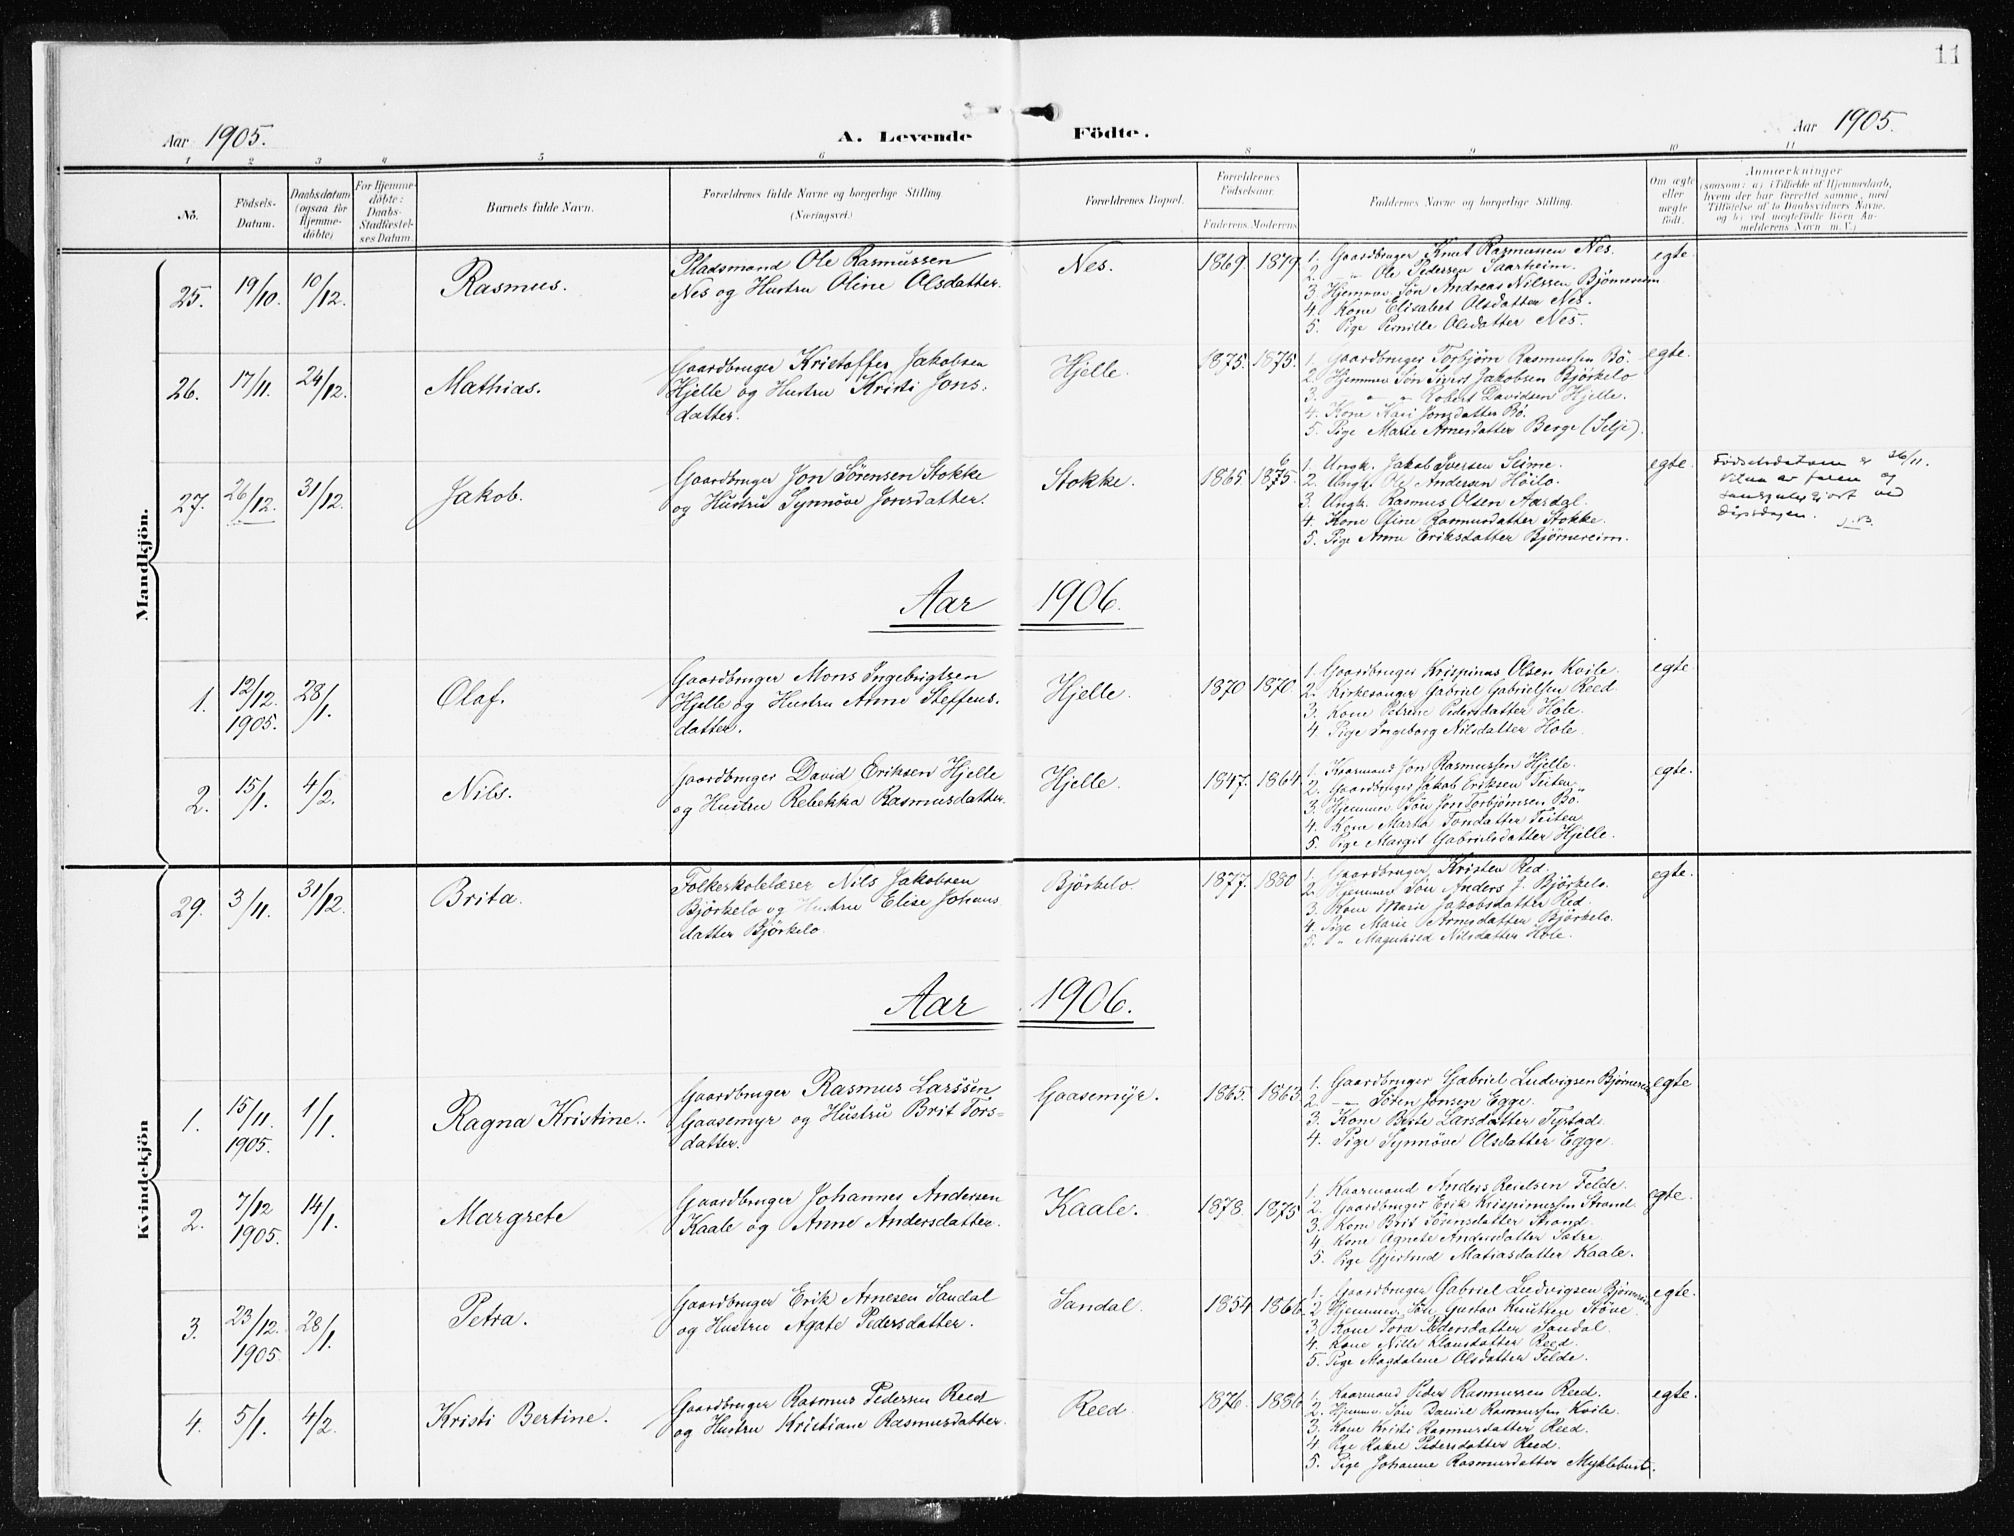 11
Aar 1905.
A. Levende Födte.
Aar 1905.
1 2 3 4 5 6 8 9 10 11
No.
Födsels-Datum.
Daabsdatum (ogsaa for Hjemme-döbte)
For Hjemme-döbte: Daabs-Stadfæstel-ses Datum.
Barnets fulde Navn.
Forældrenes fulde Navne og borgerlige Stilling.
(Næringsvei.)
Forældrenes Bopæl.
Forældrenes Födselsaar.
Faderens. Moderens.
Faddernes Navne og borgerlige Stilling.
Om ægte eller uægte födt.
Anmærkninger
(saasom: a) i Tilfælde af Hjemmedaab,
hvem der har forrettet samme, med
Tilföielse af to Daabsvidners Navne,
og b) ved uægtefödte Börn An-
melderens Navn m. V.)
Mandkjön.
25. 19/10. 10/12. Rasmus.
Pladsmand Ole Rasmussen
Nes og Hustru Oline Olsdatter.
Nes. 1869. 1879.
1. Gaardbruger Knut Rasmussen Nes.
2. " Ole Pedersen Saarheim.
3. Hjemmev. Søn Andreas Nilssen Bjørnereim
4. Kone Elisabet Olsdatter Nes.
5. Pige Pernille Olsdatter Nes.
egte.
26. 17/11. 24/12. Mathias.
Gaardbruger Kristoffer Jakobsen
Hjelle og Hustru Kristi Jons-
datter.
Hjelle. 1875. 1875.
1. Gaardbruger Torbjørn Rasmussen Bö.
2. Hjemmev Søn Sivert Jakobsen Bjørkelo
3. " " Robert Davidsen Hjelle.
4. Kone Kari Jonsdatter Bö.
5. Pige Marie Arnesdatter Berge (Selje).
egte.
27. 26/12. 31/12. Jakob.
Gaardbruger Jon Sørensen Stokke
og Hustru Synnöve Jonsdatter.
Stokke. 1865 1875. 6
1. Ungk. Jakob Iversen Slime.
2. Ungk. Ole Andersen Höilo.
3. Ungk. Rasmus Olsen Aardal.
4. Kone Oline Rasmusdatter Stokke.
5. Pige Anne Eriksdatter Bjørnereim.
egte.
Fødselsdatum er 26/11.
ved
dåpsdagen.
Aar 1906.
1. 12/12. 1905. 28/1. Olaf.
Gaardbruger Mons Ingebrigtsen
Hjelle og Hustru Anne Steffens-
datter.
Hjelle. 1870 1870.
1. Gaardbruger Krispinus Olsen Kvile.
2. Kirkesanger Gabriel Gabrielsen Reed.
3. Kone Petrine Pedersdatter Hole.
4. Pige Ingeborg Nilsdatter Hole.
egte.
2. 15/1. 4/2. Nils.
Gaardbruger David Eriksen Hjelle
og Hustru Rebekka Rasmusdatter.
Hjelle. 1847. 1864.
1. Kaarmand Jon Rasmussen Hjelle.
2. Gaardbruger Jakob Eriksen Teiten.
3. Hjemmev. Søn Jon Torbjørnsen Bö.
4. Kone Marta Tondatter Teiten
5. Pige Margit Gabrielsdatter Hjelle.
egte.
Kvindekjön
29. 3/11. 31/12. Brita.
Folkeskolelærer Nils Jakobsen
Bjørkelo og Hustru Elise Johans
datter Bjørkelo
Bjørkelo 1877. 1880
1. Gaardbruger Kristen Red.
2. Hjemmev Søn Anders J. Bjørkelo.
3. Kone Marie Jakobsdatter Red.
4. Pige Marie Arnesdatter Bjørkelo.
5. " Magnhild Nilsdatter Hole.
egte.
Aar 1906.
1. 15/11. 1905. 1/1. Ragna Kristine.
Gaardbruger Rasmus Larssen
Gaasemyr og Hustru Brit Tors-
datter.
Gaasemyr. 1865. 1863.
1. Gaardbruger Gabriel Ludvigsen Bjørnereim
2 " Sören Jonsen Egge.
3. Kone Berte Larsdatter Tystad.
4. Pige Synnöve Olsdatter Egge.
egte
2. 7/12 1905. 14/1. Margrete
Gaardbruger Johannes Andersen
Kaale og Anne Andersdatter.
Kaale. 1878. 1875
1. Kaarmand Anders Rentsen Felde.
2. Gaardbruger Erik Krispinussen Strand
3. Kone Brit Sørensdatter Strand.
4. Kone Agnete Andersdatter Sætre
5. Pige Gjertrud Matiasdatter Kaale.
egte.
3. 23/12. 1905. 28/1. Petra.
Gaardbruger Erik Arnesen Sandal
og Hustru Agate Pedersdatter.
Sandal. 1854 1866.
1. Gaardbruger Gabriel Ludvigsen Bjørnereim
2 Hjemmev. Søn Gustav Knutsen Støve.
3. Kone Tora Pedersdatter Sandal.
4. Kone Nille Klausdatter Reed.
5. Pige Magdalene Olsdatter Felde.
egte.
4. 5/1. 4/2. Kristi Bertine.
Gaardbruger Rasmus Pedersen Reed
og Hustru Kristiane Rasmusdatter.
Reed. 1876. 1886
1. Kaarmand Peder Rasmussen Reed.
2. Hjemmev Søn Daniel Rasmussen Kvile.
3. Kone Kristi Rasmusdatter Reed.
4. Pige Rakel Pedersdatter Reed.
5. Pige Johanne Rasmusdatter Myklebust.
egte.